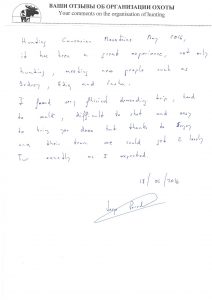 ВАШИ ОТЗЫВЫ ОБ ОРГАНИЗАЦИИ ОХОТЫ
Your comments on the organisation of hunting
Hunting Caucasian Mountains May 2016,
it has been a great experience, not only
hunting, meeting new people such as
and
I found very physical demanding trip, hard
to walk, difficult to shot and easy
to bring you down but thanks to
and their team we could get a lovely
Tur exactly as I expected.